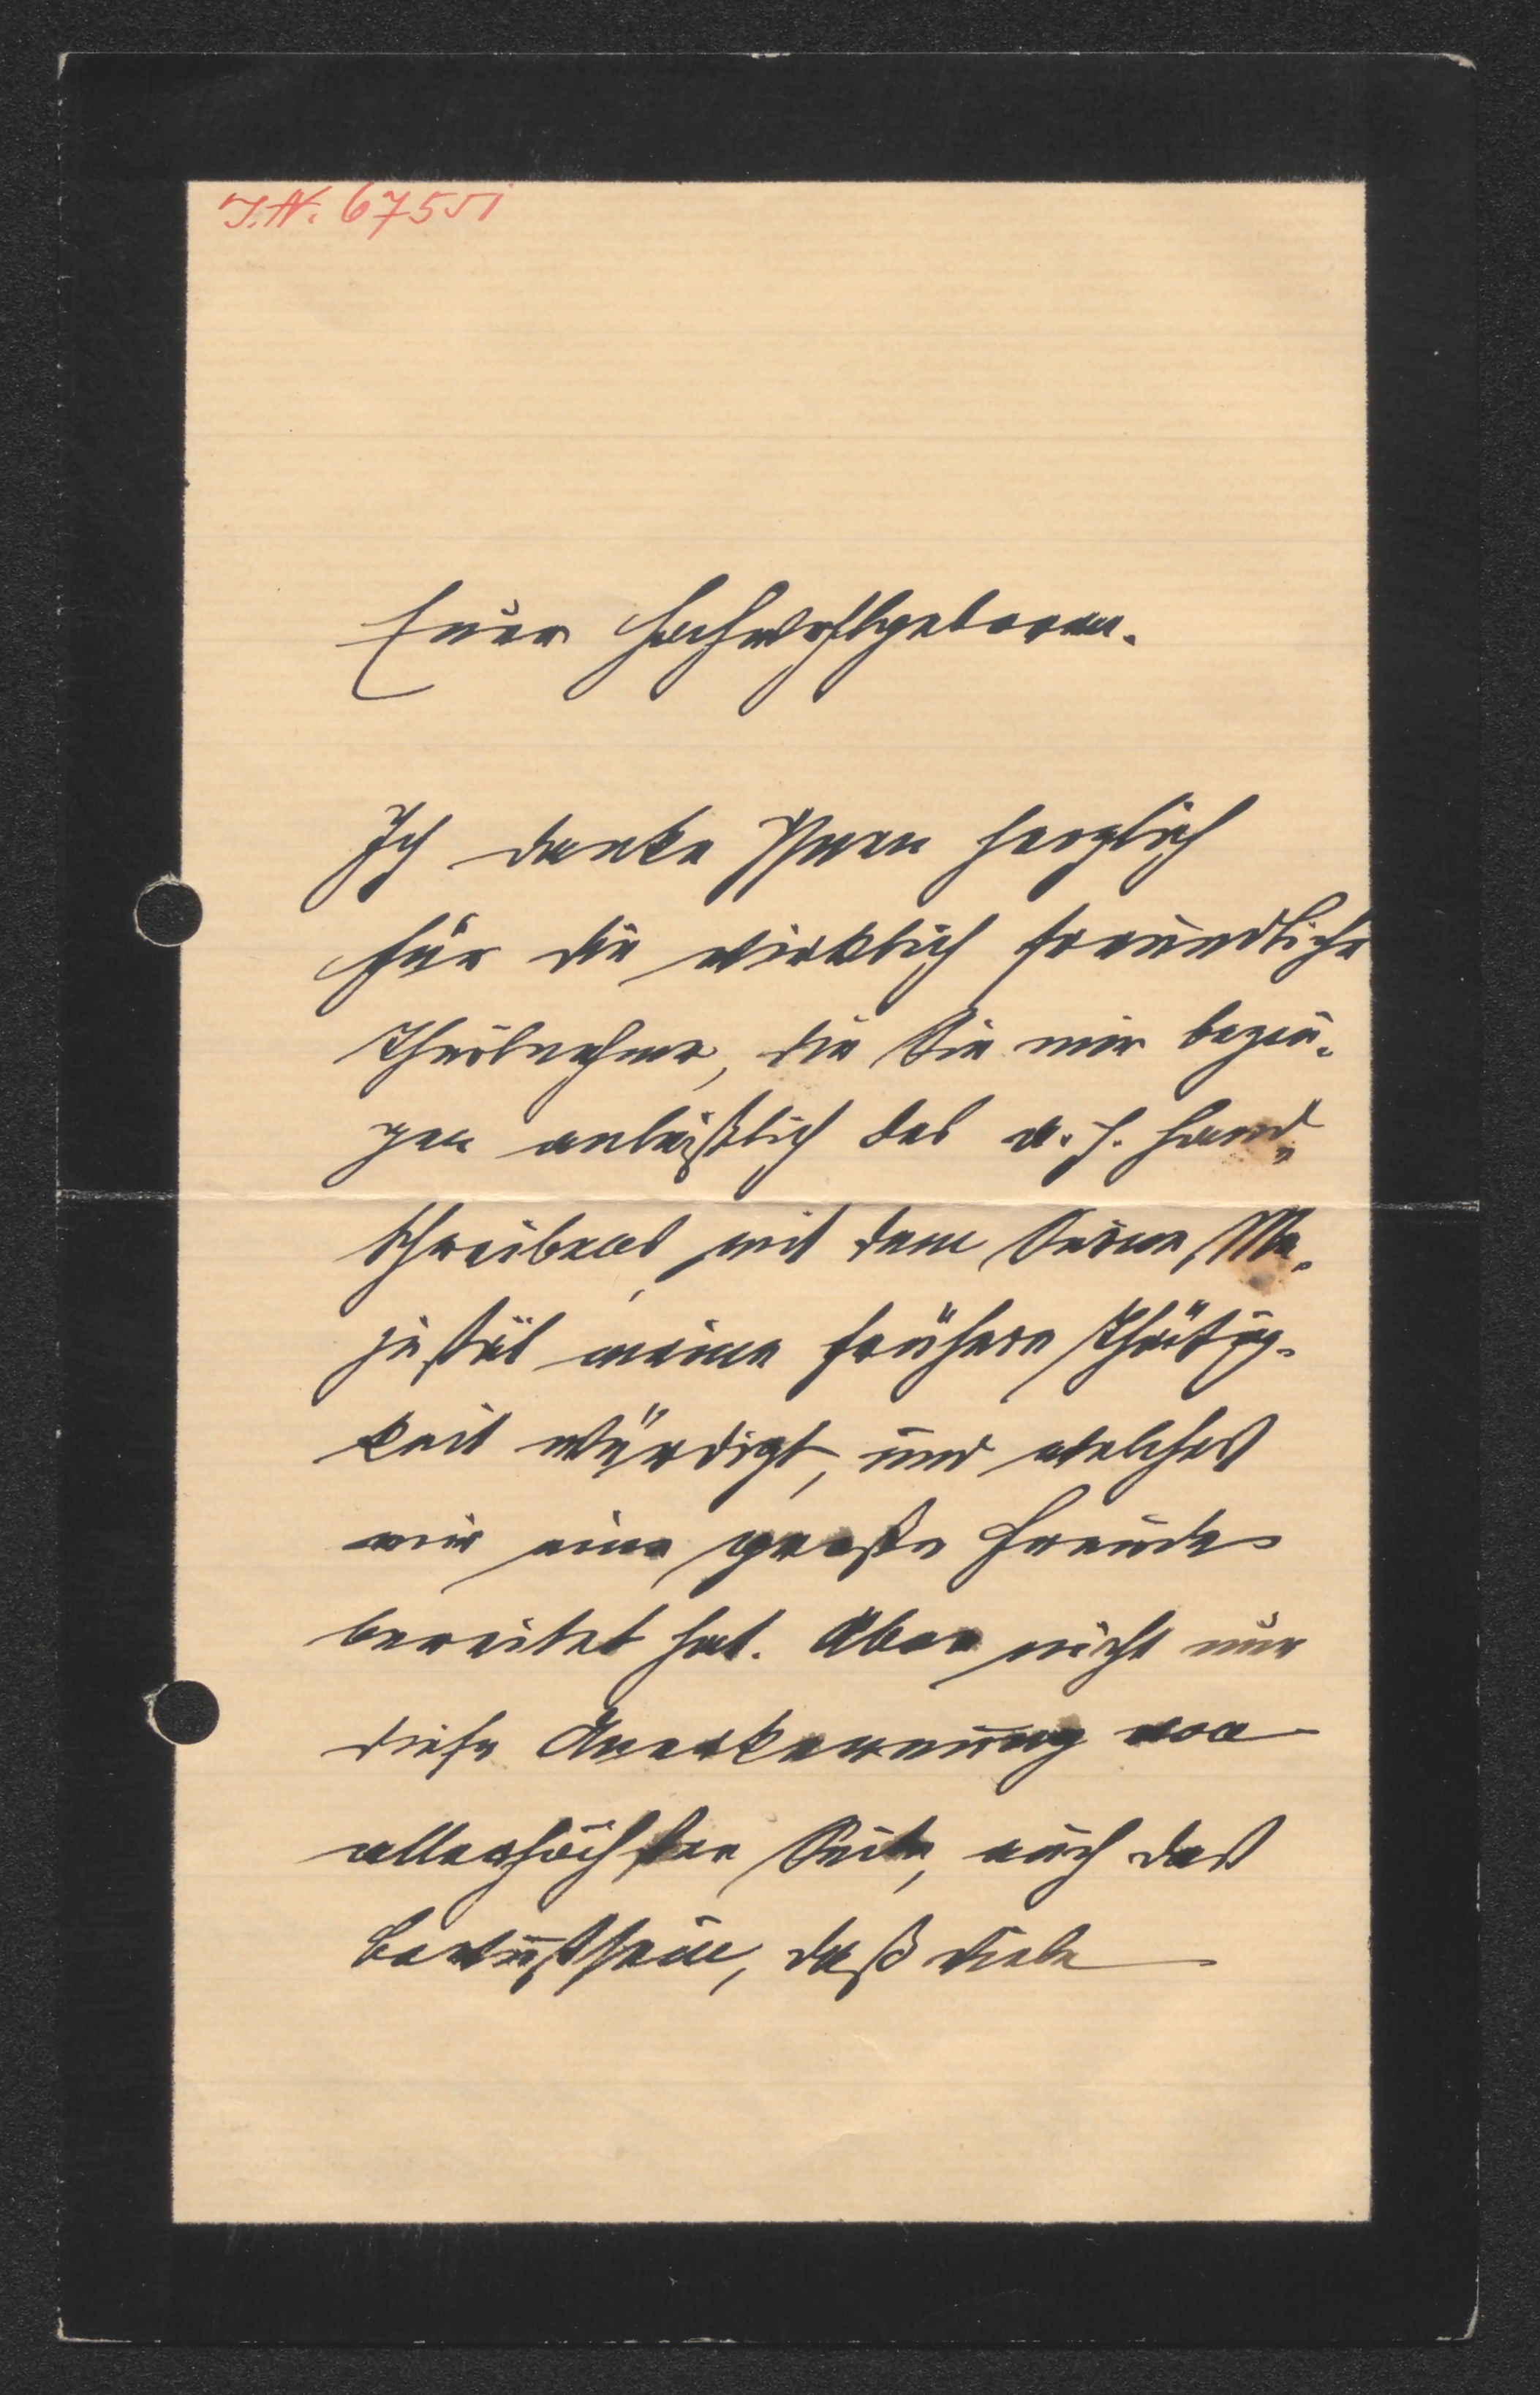 I.N. 67551
Euer Hochwohlgeboren.
Ich danke Ihnen herzlich
für die wirklich freundliche
Theilnahme, die Sie mir bezeu-
gen anläßlich des a. h. Hand-
schreibens, mit dem Seine Ma-
jestät meine frühere Thätig-
keit würdigt, und welches
mir eine große Freude
bereitet hat. Aber nicht nur
diese Anerkennung von
allerhöchster Seite, auch das
Bewußtsein, daß viele